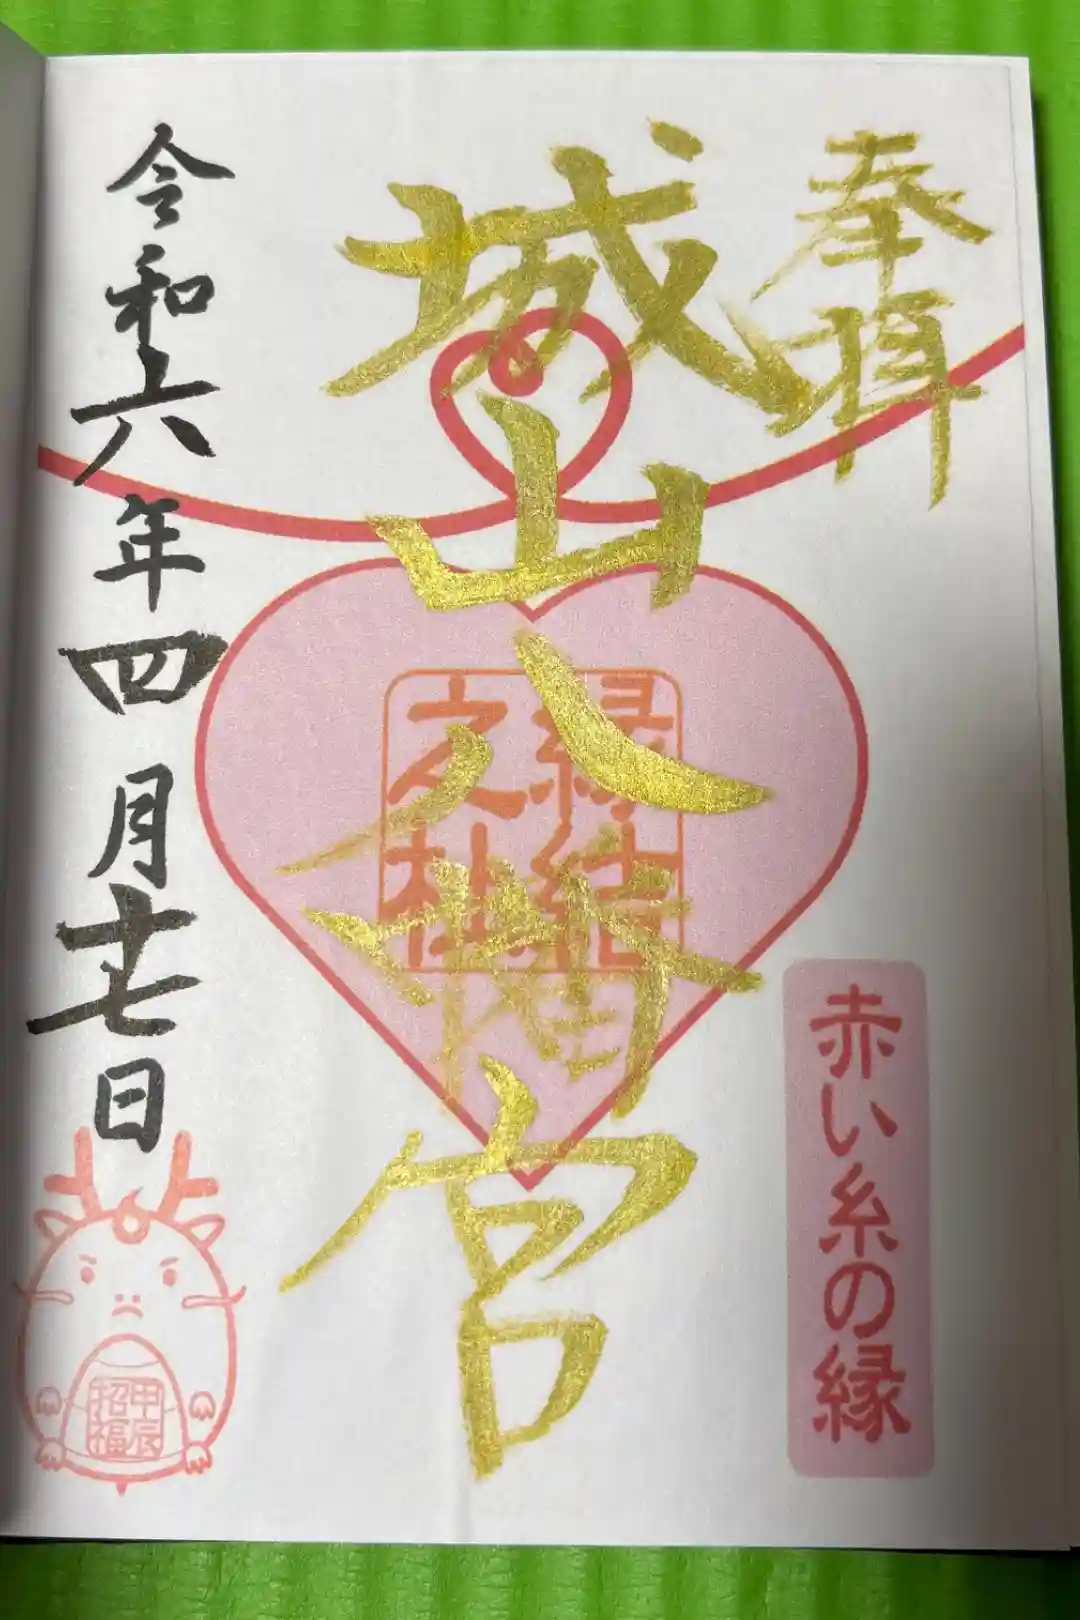 奉拝
赤い糸の縁
城山八幡宮
縁結
之社
令和六年四月十七日
甲辰
招福